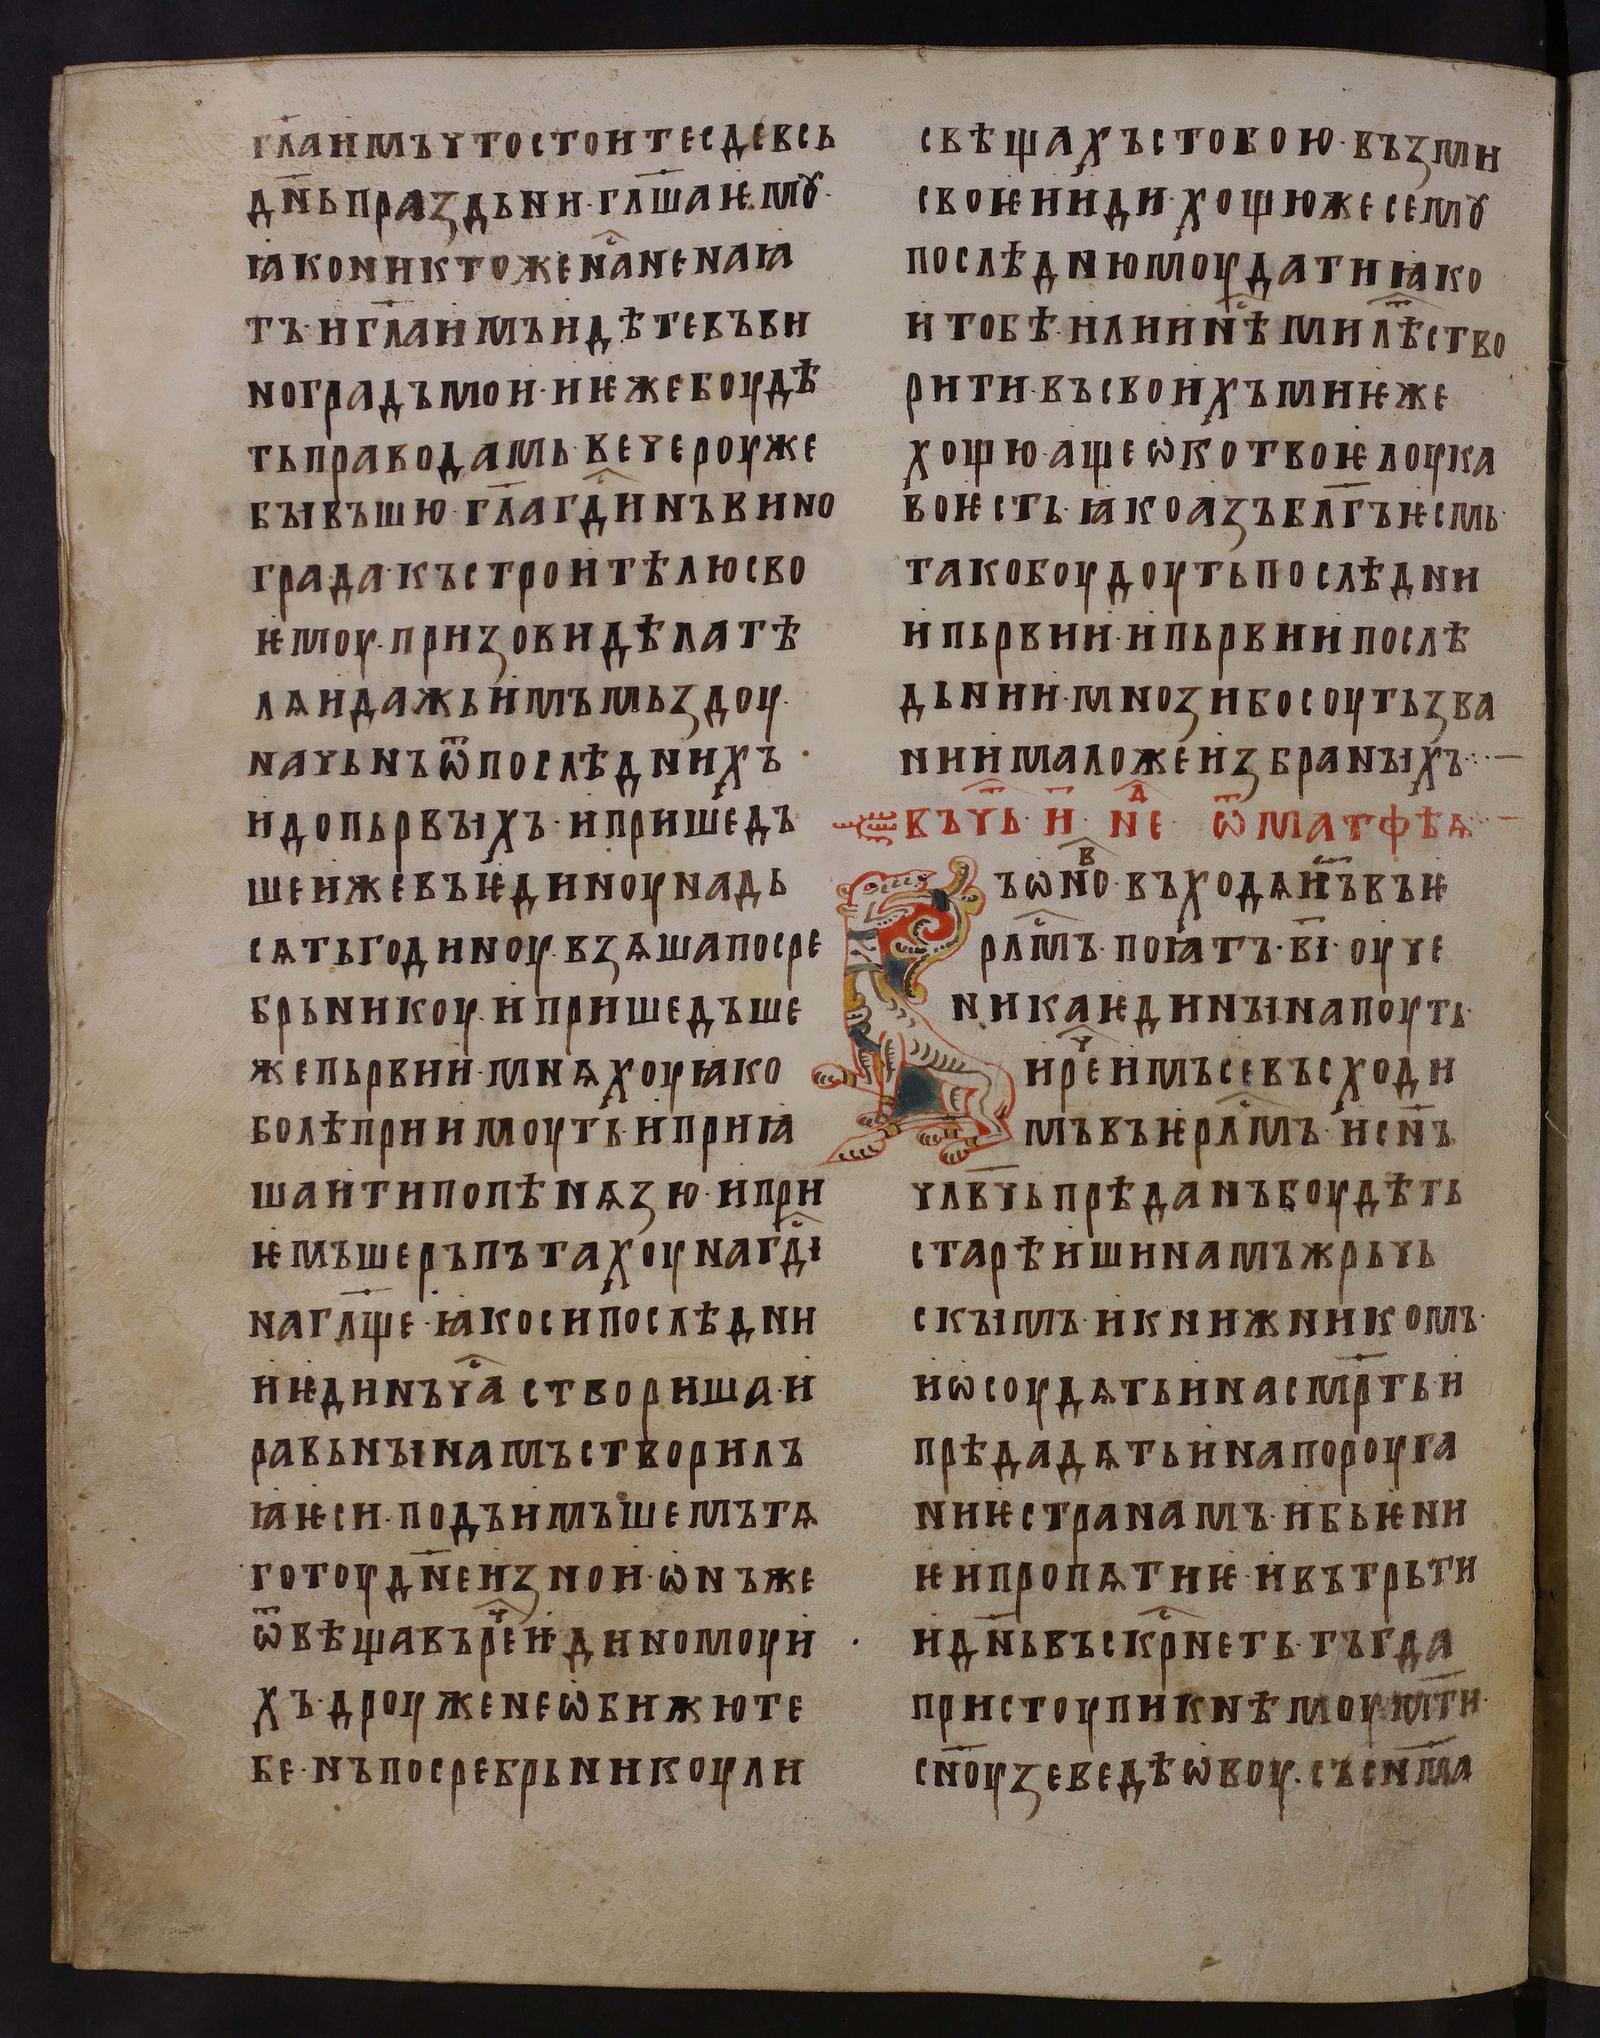 гл҃аимъчтостоитесдєвсь
дн҃ьпраздьни·гл҃шаѥмꙋ·
ꙗконикътожеНасненаꙗ
тъ·игл҃аимъидѣтевъви
ноградъмои·иѥжебоудѣ
тьправодамь·вечероуже
бывъшю·гл҃агⷭ҇динъвино
града·къстроитѣлюсво
ѥмоу·призовидѣлатѣ
лѧидажьимъмьздоу·
начьнъѿпослѣднихъ·
идопьрвыхъ·ипришедъ
шеижевъѥдиноунадь
сѧтьгодиноу·взѧшапосре
брьникоу·ипришедъше
жепьрвии·мнѧхоуꙗко
болѣприимоуть·иприꙗ
шаитипопѣнѧзю·ипри
ѥмъшеръпътахоунагⷭ҇ди
нагл҃ще·ꙗкосипослѣдни
иѥдинъчⷭ҇астворишаи
равьнынамъстворилъ
ꙗѥси·подъимъшемътѧ
готоудн҃еизнои·ѡнъже
ѿвѣщавърⷱ҇еѥдиномоуи
хъ·дроуженеѡбижюте
бе·нъпосребрьникоули
свѣщахъстобою·възми
своѥииди·хощюжесемꙋ
послѣднюмоудатиꙗко
итобѣ·илиинⷭ҇ѣмилѣⷮство
рити·въсвоихъмиѥже
хощю·ащеѡкотвоѥлоука
воѥсть·ꙗкоазъбл҃гъѥсмь·
такобоудоутьпослѣдни
ипьрвии·ипьрвиипослѣ
дьнии·мнозибосоутьзва
ниималожеизбраныхъ
Въчⷮь·и҃·неⷣ ѿматфѣѧ
ъѡноⷡ·въходѧис҃ъвъѥ
рлⷭ҇мъ·поꙗтъ·в҃і·оуче
никаѥдинынапоуть·
ирⷱ҇еимъсевъсходи
мъвъѥрлⷭ҇мъ·исн҃ъ
чл҃вчьпрѣданъбоудѣть
старѣишинамъжрьчь
скымъ·икнижникомъ·
иѡсоудѧтьинасмр҃тьи
прѣдадѧтьинапороуга
ниѥстранамъ·ибьѥни
ѥипропѧтиѥ·ивътрьти
идн҃ьвъскрⷭ҇неть·тъгда
пристоупикнѣмоумт҃и·
сн҃оузеведѣѡвоу·съсн҃ма